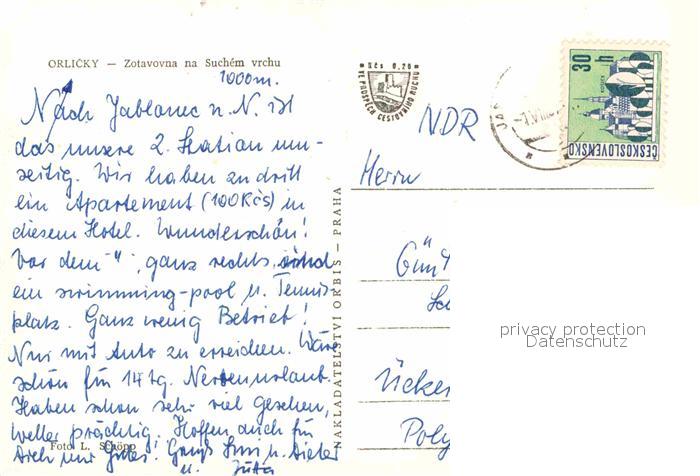 ORLIČKY — Zotavovna na Suchém vrchu
1000m.
Nach Jablonec n. N. ist
das unsere 2. Station um-
seitig. Wir haben zu dritt
ein Apartement (100Kčs) in
diesem Hotel. Wunderschön!
Vor dem "4", ganz rechts, sind
ein swimming-pool u. Tennis-
platz. Ganz wenig Betrieb!
Nur mit Auto zu erreichen. Wäre
schön für 14 tg. Nervenurlaub.
Haben schon sehr viel gesehen,
Wetter prächtig! Hoffen auch für
Dich nur Gutes! Gruß u. Dieter
Foto L. Schöpp
u. Jutta
NAKLADATELSTVÍ ORBIS — PRAHA
Kčs 0,20
VE PROSPĚCH CESTOVNÍHO RUCHU
30 h
ČESKOSLOVENSKO
NDR
Herrn
Günt
Sc
Ücker
Poly
privacy protection
Datenschutz